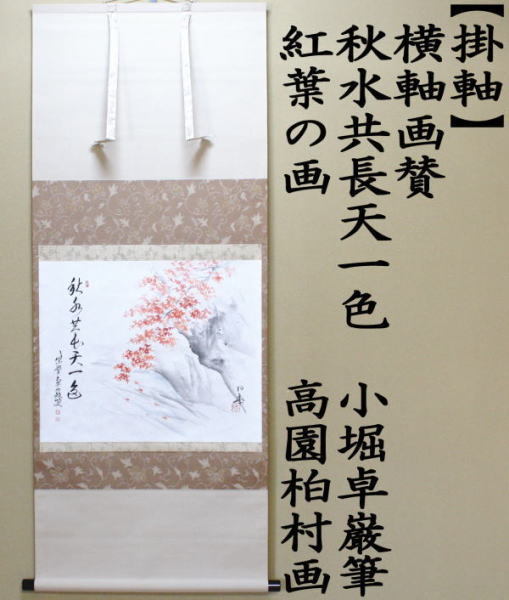 【掛軸】
横軸画賛
秋水共長天一色　小堀卓巌筆
紅葉の画　高園柏村画
秋水共長天一色